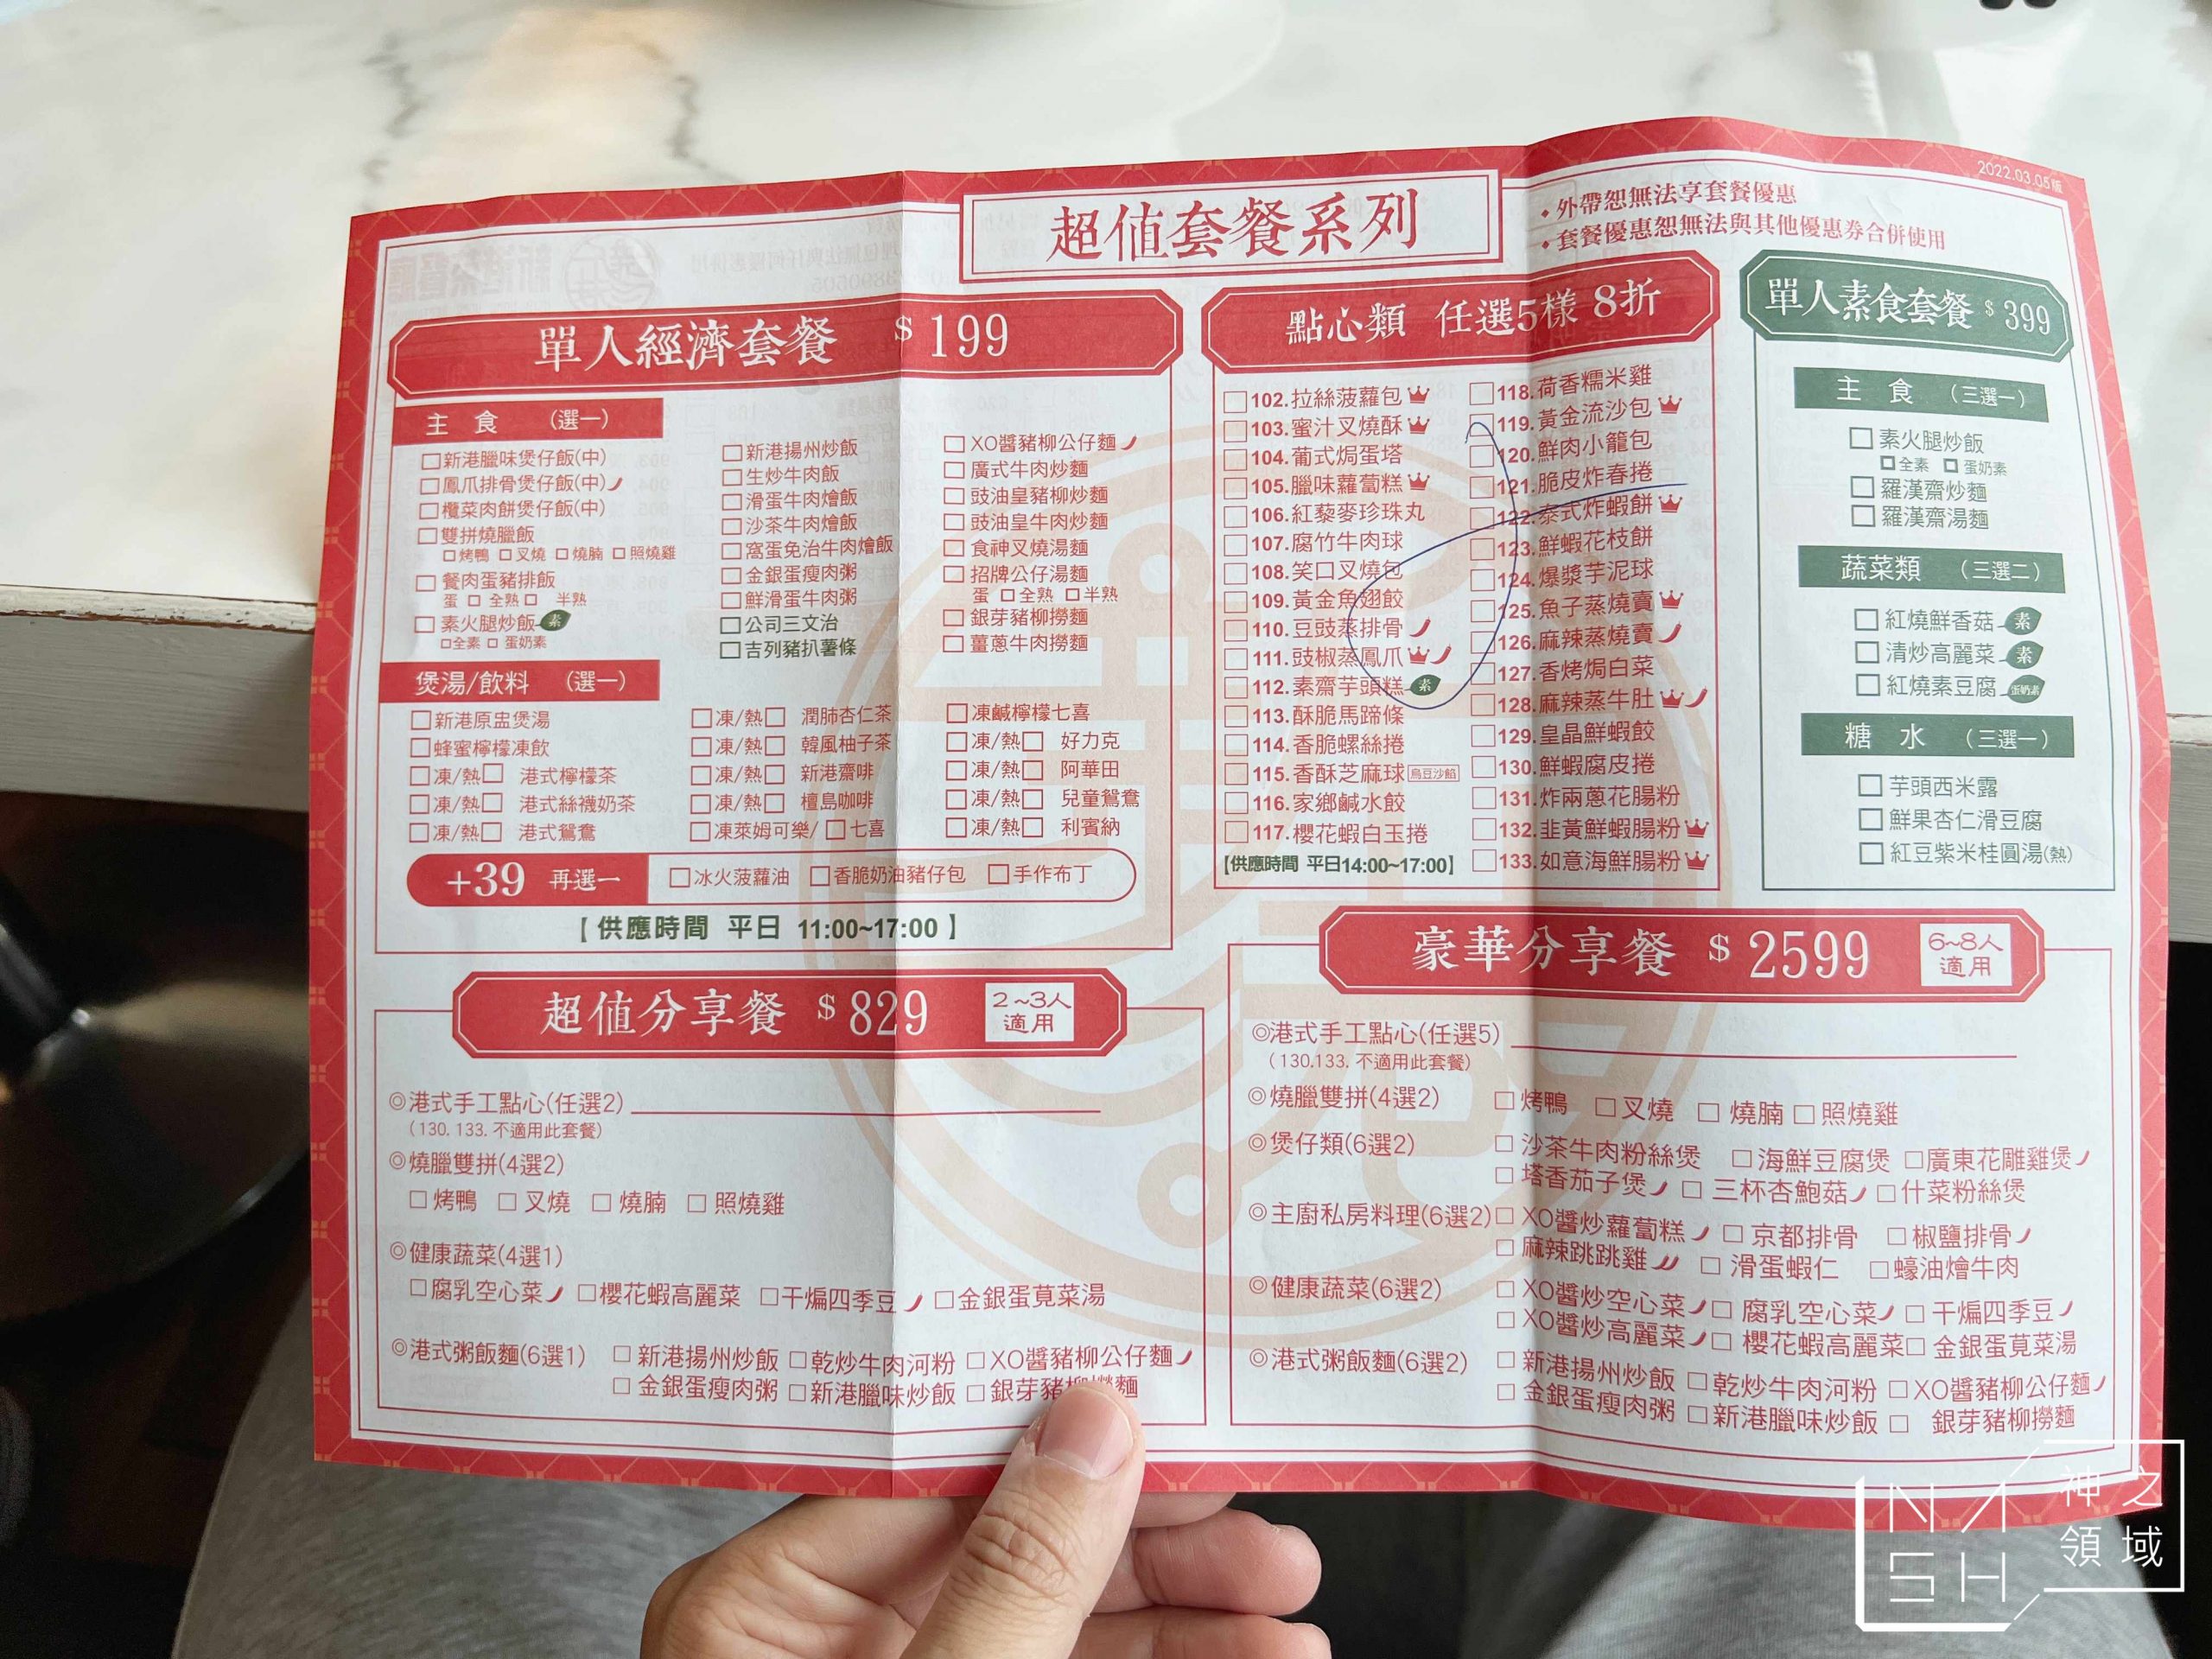 2022.03.05版
超值套餐系列
・外帶恕無法享套餐優惠
・套餐優惠恕無法與其他優惠券合併使用
單人經濟套餐 $199
主 食 (選一)
□新港臘味煲仔飯(中)
□鳳爪排骨煲仔飯(中)
□欖菜肉餅煲仔飯(中)
□雙拼燒臘飯
□烤鴨 □叉燒 □燒腩 □照燒雞
□餐肉蛋豬排飯
蛋 □ 全熟□ 半熟
□素火腿炒飯 素
□全素 □ 蛋奶素
□新港揚州炒飯
□生炒牛肉飯
□滑蛋牛肉燴飯
□沙茶牛肉燴飯
□窩蛋免治牛肉燴飯
□金銀蛋瘦肉粥
□鮮滑蛋牛肉粥
□公司三文治
□吉列豬扒薯條
□XO醬豬柳公仔麵
□廣式牛肉炒麵
□豉油皇豬柳炒麵
□豉油皇牛肉炒麵
□食神叉燒湯麵
□招牌公仔湯麵
蛋 □全熟 □半熟
□銀芽豬柳撈麵
□薑蔥牛肉撈麵
煲湯/飲料 (選一)
□新港原盅煲湯
□蜂蜜檸檬凍飲
□凍/熱□ 港式檸檬茶
□凍/熱□ 港式絲襪奶茶
□凍/熱□ 港式鴛鴦
□凍/熱□ 潤肺杏仁茶
□凍/熱□ 韓風柚子茶
□凍/熱□ 新港齋啡
□凍/熱□ 檀島咖啡
□凍萊姆可樂/ □七喜
□凍鹹檸檬七喜
□凍/熱□ 好力克
□凍/熱□ 阿華田
□凍/熱□ 兒童鴛鴦
□凍/熱□ 利賓納
+39 再選一 □冰火菠蘿油 □香脆奶油豬仔包 □手作布丁
【供應時間 平日 11:00~17:00】
點心類 任選5樣 8折
□102.拉絲菠蘿包
□103.蜜汁叉燒酥
□104.葡式焗蛋塔
□105.臘味蘿蔔糕
□106.紅藜麥珍珠丸
□107.腐竹牛肉球
□108.笑口叉燒包
□109.黃金魚翅餃
□110.豆豉蒸排骨
□111.豉椒蒸鳳爪
□112.素齋芋頭糕 素
□113.酥脆馬蹄條
□114.香脆螺絲捲
□115.香酥芝麻球 烏豆沙餡
□116.家鄉鹹水餃
□117.櫻花蝦白玉捲
【供應時間 平日14:00~17:00】
□118.荷香糯米雞
□119.黃金流沙包
□120.鮮肉小籠包
□121.脆皮炸春捲
□122.泰式炸蝦餅
□123.鮮蝦花枝餅
□124.爆漿芋泥球
□125.魚子蒸燒賣
□126.麻辣蒸燒賣
□127.香烤焗白菜
□128.麻辣蒸牛肚
□129.皇晶鮮蝦餃
□130.鮮蝦腐皮捲
□131.炸兩蔥花腸粉
□132.韭黃鮮蝦腸粉
□133.如意海鮮腸粉
單人素食套餐 $399
主 食 (三選一)
□素火腿炒飯
□全素 □蛋奶素
□羅漢齋炒麵
□羅漢齋湯麵
蔬菜類 (三選二)
□紅燒鮮香菇 素
□清炒高麗菜 素
□紅燒素豆腐 蛋奶素
糖 水 (三選一)
□芋頭西米露
□鮮果杏仁滑豆腐
□紅豆紫米桂圓湯(熱)
超值分享餐 $829 2~3人
適用
◎港式手工點心(任選2)
(130.133.不適用此套餐)
◎燒臘雙拼(4選2)
□烤鴨 □叉燒 □燒腩 □照燒雞
◎健康蔬菜(4選1)
□腐乳空心菜 □櫻花蝦高麗菜 □干煸四季豆 □金銀蛋莧菜湯
◎港式粥飯麵(6選1) □新港揚州炒飯 □乾炒牛肉河粉 □XO醬豬柳公仔麵
□金銀蛋瘦肉粥 □新港臘味炒飯 □銀芽豬柳撈麵
豪華分享餐 $2599 6~8人
適用
◎港式手工點心(任選5)
(130.133.不適用此套餐)
◎燒臘雙拼(4選2) □烤鴨 □叉燒 □燒腩 □照燒雞
◎煲仔類(6選2) □沙茶牛肉粉絲煲 □海鮮豆腐煲 □廣東花雕雞煲
□塔香茄子煲 □三杯杏鮑菇 □什菜粉絲煲
◎主廚私房料理(6選2) □XO醬炒蘿蔔糕 □京都排骨 □椒鹽排骨
□麻辣跳跳雞 □滑蛋蝦仁 □蠔油燴牛肉
◎健康蔬菜(6選2) □XO醬炒空心菜 □腐乳空心菜 □干煸四季豆
□XO醬炒高麗菜 □櫻花蝦高麗菜 □金銀蛋莧菜湯
◎港式粥飯麵(6選2) □新港揚州炒飯 □乾炒牛肉河粉 □XO醬豬柳公仔麵
□金銀蛋瘦肉粥 □新港臘味炒飯 □銀芽豬柳撈麵
NASH
神之
領域